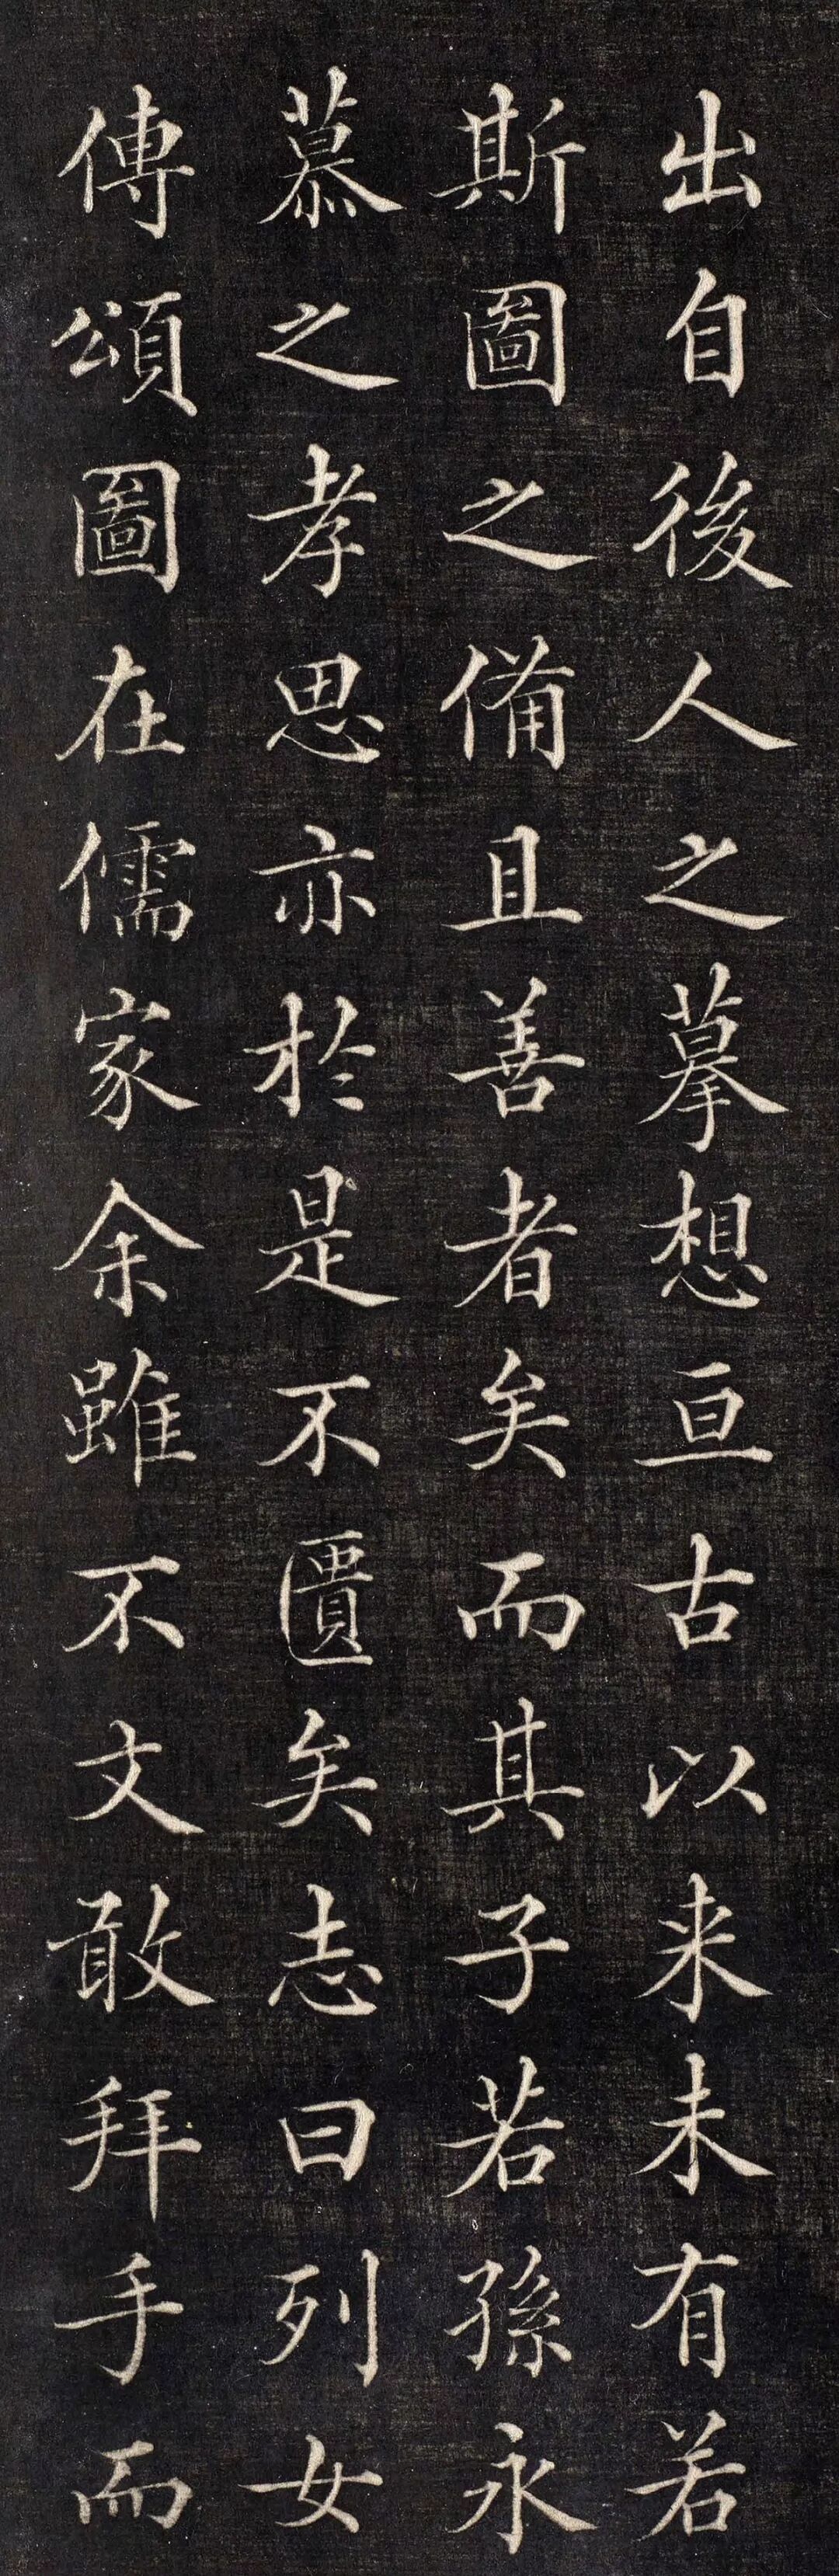 出自後人之摹想亘古以来未有若
斯圖之備且善者矣而其子若孫永
慕之孝思亦於是不匱矣志曰列女
傳頌圖在儒家余雖不文敢拜手而